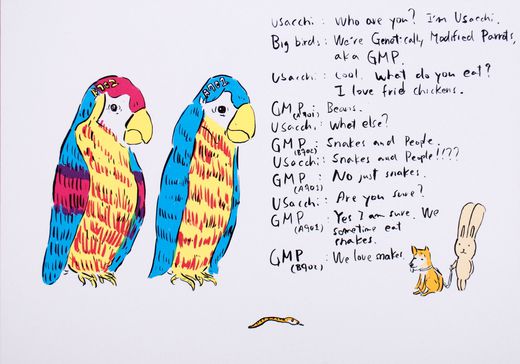 Usacchi : Who are you? I'm Usacchi.
Big birds : We're Genetically Modified Parrots,
aka GMP.
Usacchi : Cool. What do you eat?
I love frid chickens.
GMP : Beans.
(A901)
Usacchi : What else?
GMP : Snakes and People.
(B902)
Usacchi : Snakes and People!???
GMP : No just snakes.
(A901)
Usacchi : Are you sure?
GMP : Yes I am sure. We
(A901) sometime eat
snakes.
GMP : We love snakes.
(B902)